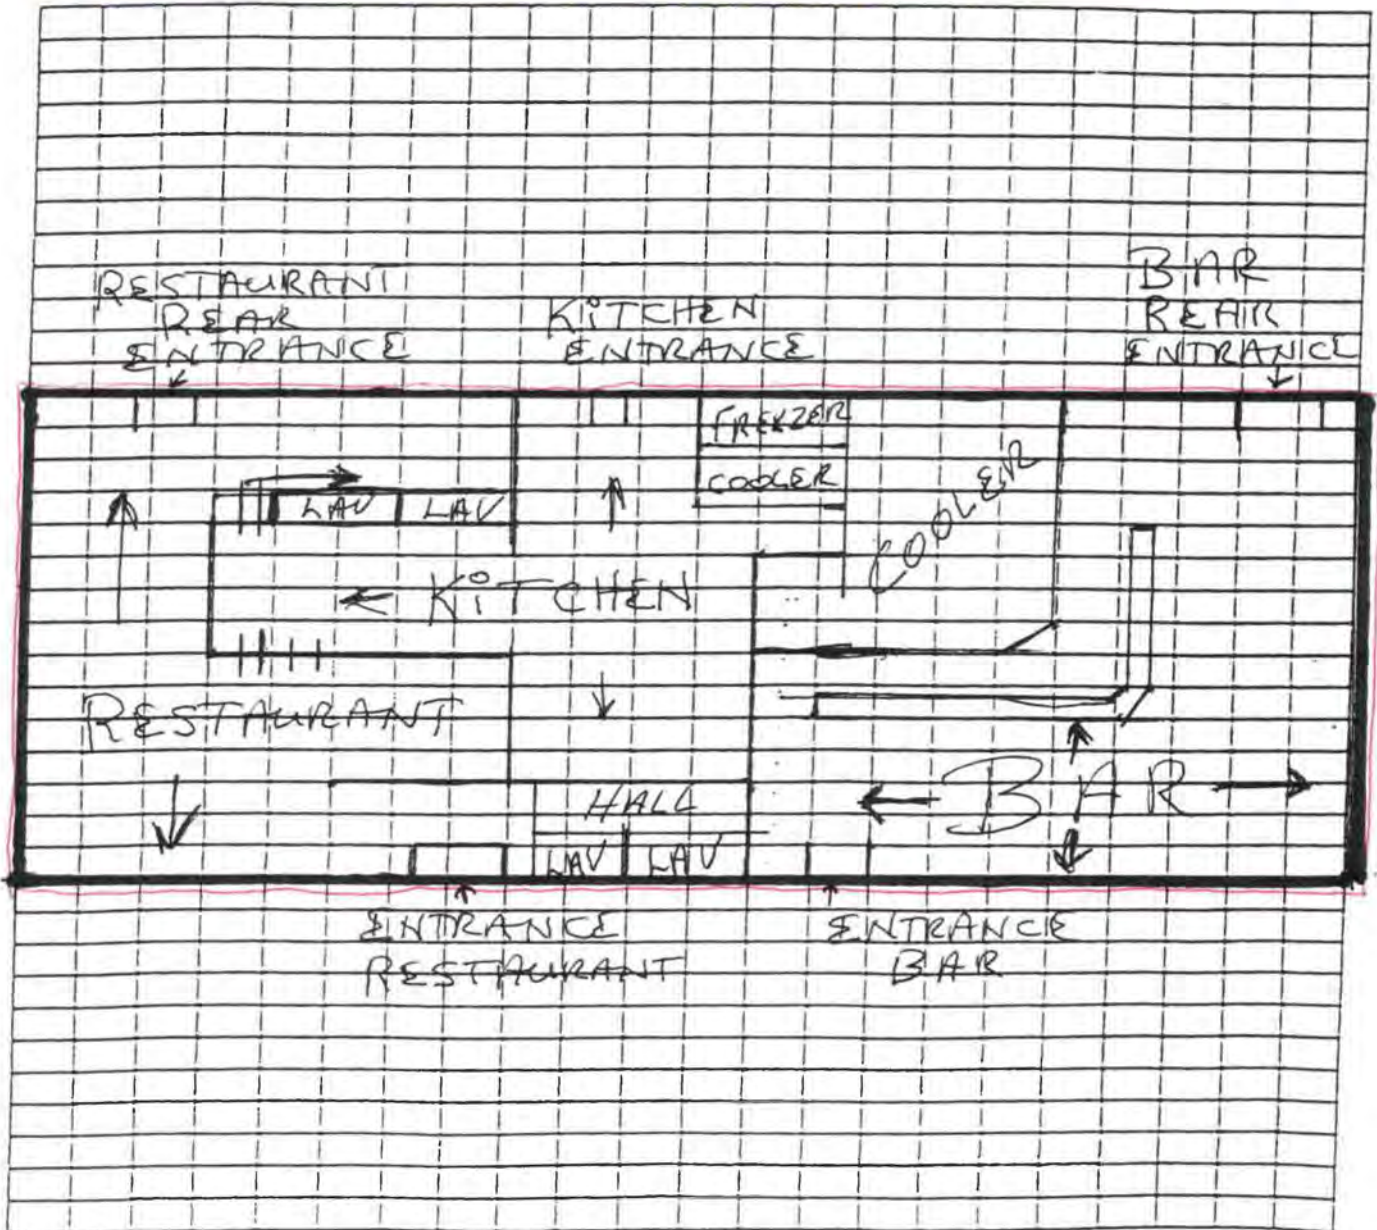 RESTAURANT
REAR
ENTRANCE
KITCHEN
ENTRANCE
BAR
REAR
ENTRANCE
FREEZER
COOLER
COOLER
LAV LAV
KITCHEN
RESTAURANT
HALL
BAR
LAV LAV
ENTRANCE
RESTAURANT
ENTRANCE
BAR